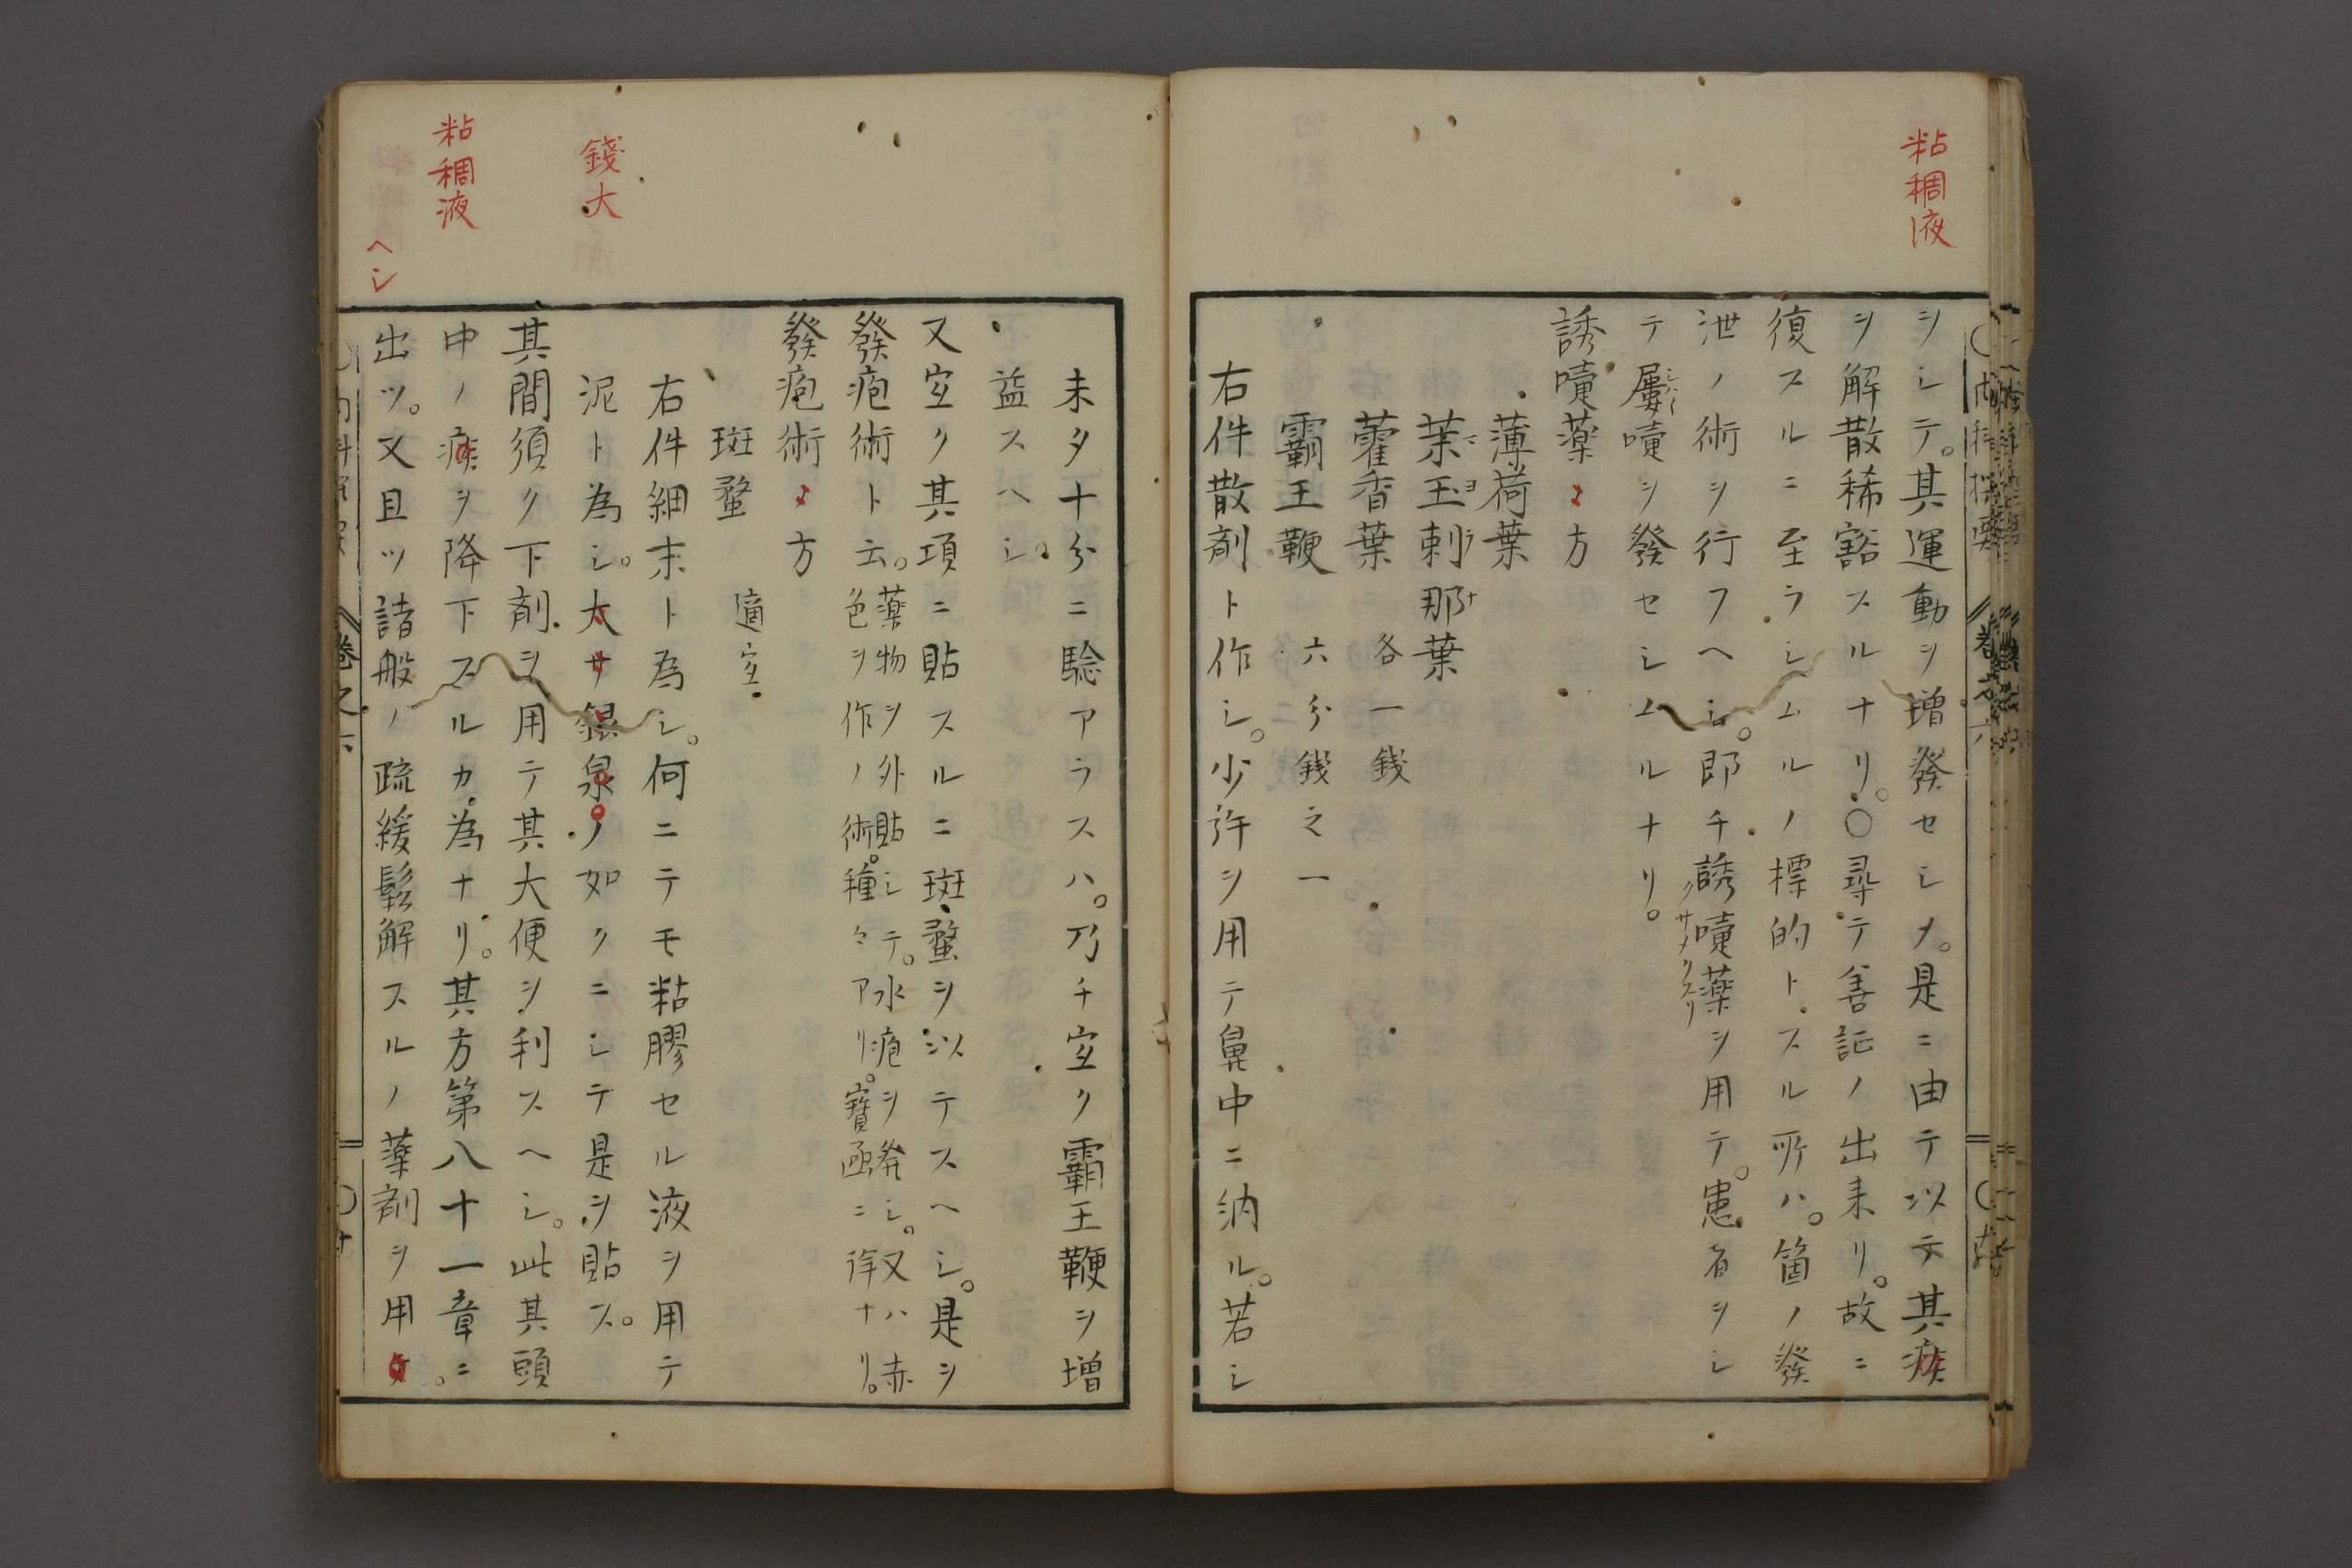 粘稠液
シシテ。其運動ヲ増發セシメ。是ニ由テ以テ其痰
ヲ解散稀豁スルナリ。〇尋テ善証ノ出来リ。故ニ
復スルニ至ラシムルノ標的トスル所ハ。箇ノ發
泄ノ術ヲ行フヘシ。即チ誘嚔薬ヲ用テ。患者ヲシ
クサメクスリ
テ屢嚔ヲ發セシムルナリ。
誘嚔薬ノ方
薄荷葉
茉玉剌那葉
藿香葉 各一錢
霸王鞭 六分錢之一
右件散剤ト作シ。少許ヲ用テ鼻中ニ納ル。若シ
錢大
粘稠液
ヘシ
未タ十分ニ驗アラスハ。乃チ宜ク霸王鞭ヲ増
益スヘシ。
又宜ク其項ニ貼スルニ斑蝥ヲ以テスヘシ。是ヲ
發疱術ト云。薬物ヲ外貼シテ。水疱ヲ発シ。又ハ赤
色ヲ作ノ術。種々アリ。寳函ニ詳ナリ。
發疱術ノ方
斑蝥 適宜
右件細末ト為シ。何ニテモ粘膠セル液ヲ用テ
泥ト為シ。大サ銀泉ノ如クニシテ是ヲ貼ス。
其間須ク下剤ヲ用テ其大便ヲ利スヘシ。此其頭
中ノ痰ヲ降下スルカ為ナリ。其方第八十一章ニ
出ツ。又且ツ諸般ノ疏緩鬆解スルノ薬剤ヲ用
巻之六